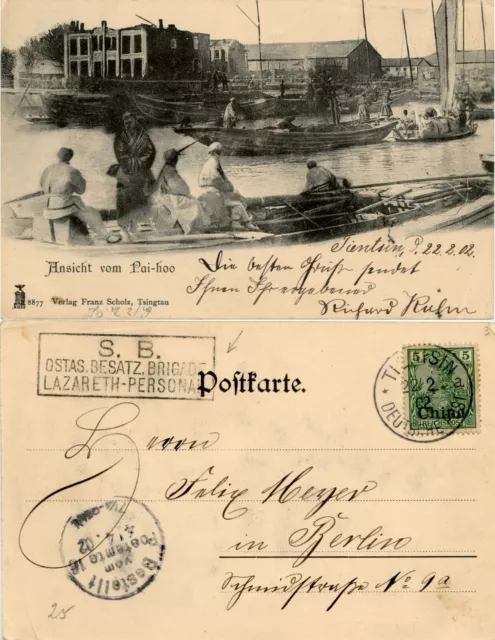 Ansicht vom Pai-hoo
8877 Verlag Franz Scholz, Tsingtau
Tientsin, d. 22.2.02.
Die besten Grüße sendet
Ihnen Ihr ergebener
Richard Kühn
S. B.
OSTAS. BESATZ. BRIGADE
LAZARETH-PERSONAL
Postkarte.
5 5
China
TIENTSIN
DEUTSCHE POST
Herrn
Felix Meyer
in Berlin
Schmidstraße No 9a
Bestellt
vom
Postamte
4. 02
25